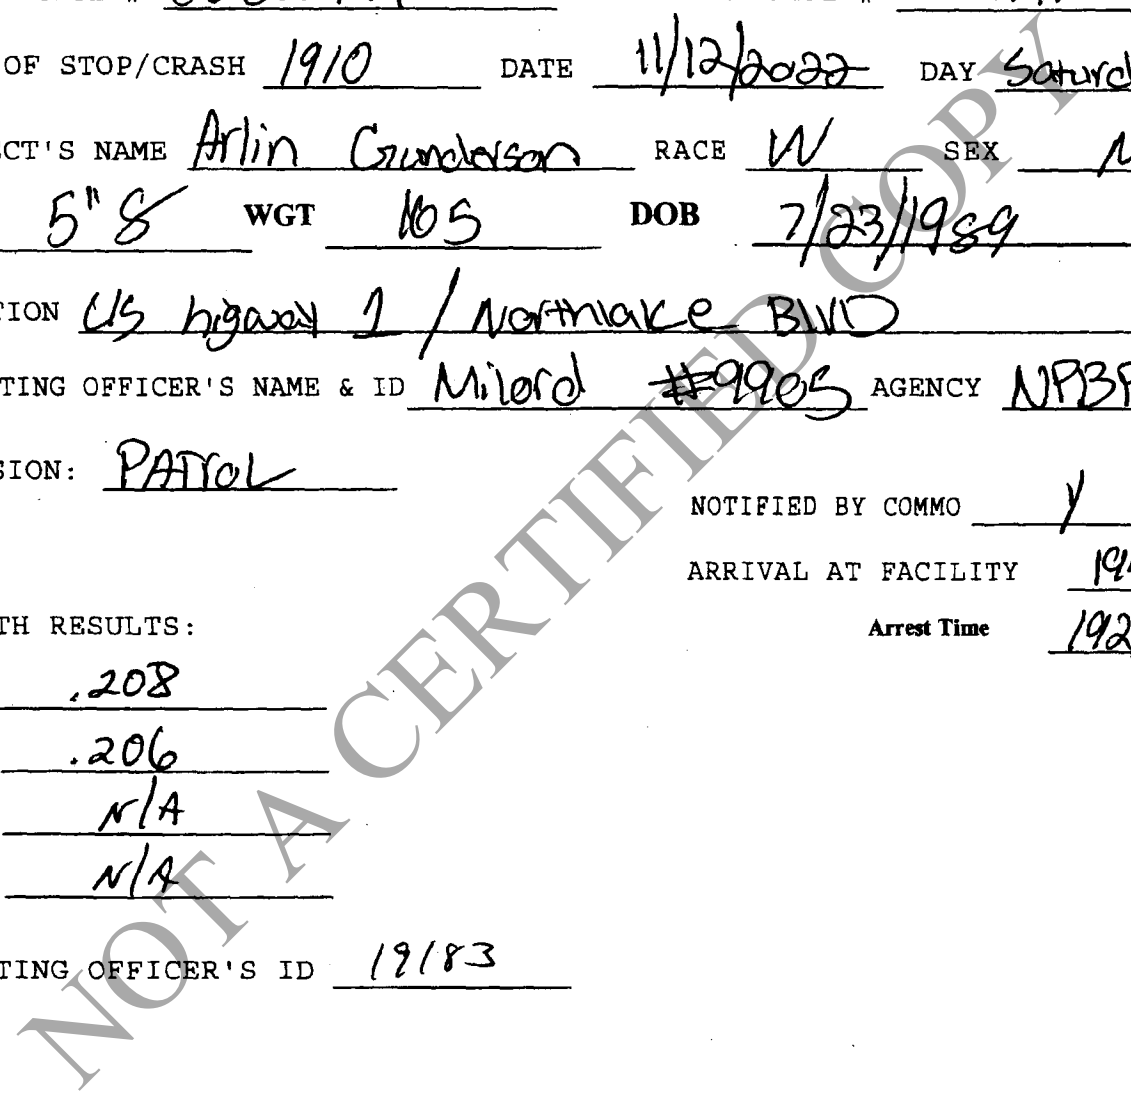 OF STOP/CRASH 1910 DATE 11/12/2022 DAY Saturd
CT'S NAME Arlin Gunderson RACE W SEX M
5"8 WGT 165 DOB 7/23/1989
ION US higway 1 / Northlake BLVD
TING OFFICER'S NAME & ID Milord #9905 AGENCY NPBP
SION: PATROL
NOTIFIED BY COMMO Y
ARRIVAL AT FACILITY 19
TH RESULTS:
Arrest Time 192
.208
.206
N/A
N/A
TING OFFICER'S ID 19183
NOT A CERTIFIED COPY